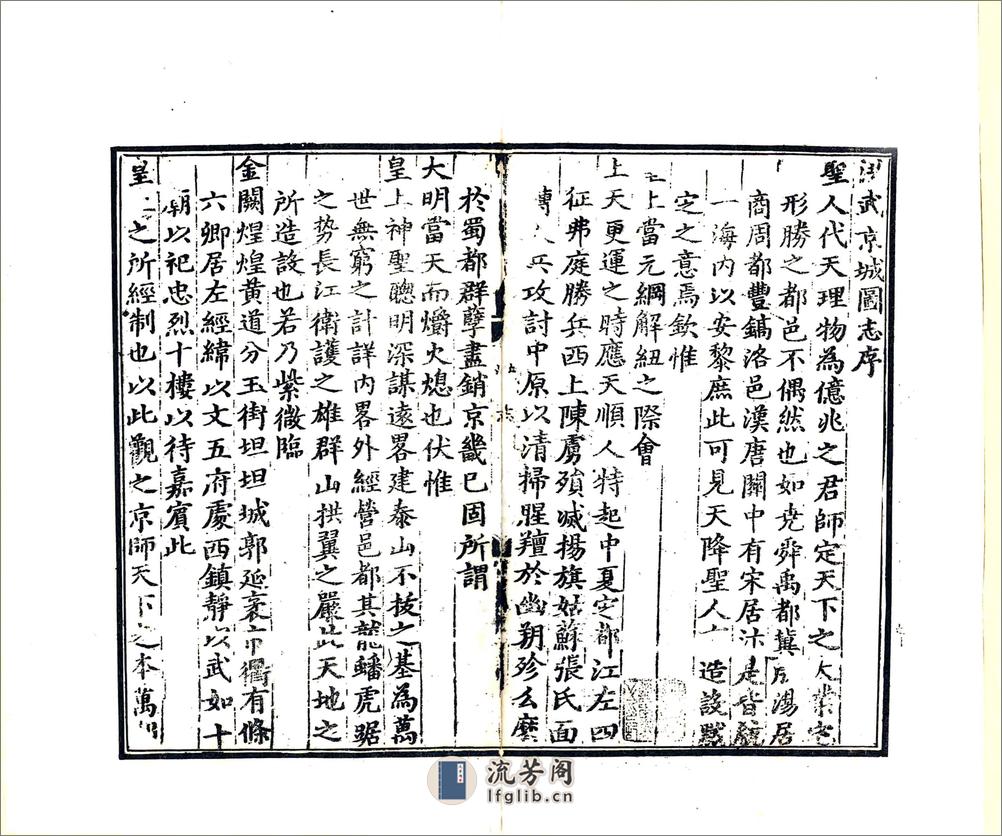 洪武京城圖志序
聖人代天理物為億兆之君師定天下之大業定
形勝之都邑不偶然也如堯舜禹都冀后湯居
商周都豐鎬洛邑漢唐關中有宋居汴是皆統
一海内以安黎庶此可見天降聖人 造設默
定之意焉欽惟
上當元綱解紐之際會
上天更運之時應天順人特起中夏定都江左四
征弗庭勝兵西上陳虜殞滅揚旗姑蘇張氏面
縛 兵攻討中原以清掃腥羶於幽朔殄么麼
於蜀都群孽盡銷京畿巳固所謂
大明當天而爝火熄也伏惟
皇上神聖聰明深謀遠畧建泰山不拔之基為萬
世無窮之計詳内畧外經營邑都其龍蟠虎踞
之勢長江衛護之雄群山拱翼之嚴此天地之
所造設也若乃紫微臨
金闕煌煌黄道分玉街坦坦城郭延袤市衢有條
六卿居左經緯以文五府處西鎮靜以武如十
廟以祀忠烈十樓以待嘉賓此
皇上之所經制也以此觀之京師天下之本萬
志
流芳阁
lfglib.cn